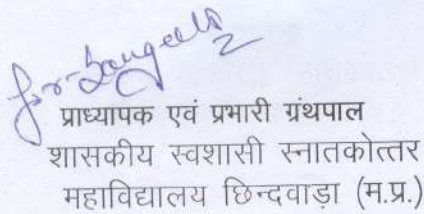 प्राध्यापक एवं प्रभारी ग्रंथपाल
शासकीय स्वशासी स्नातकोत्तर
महाविद्यालय छिन्दवाड़ा (म.प्र.)